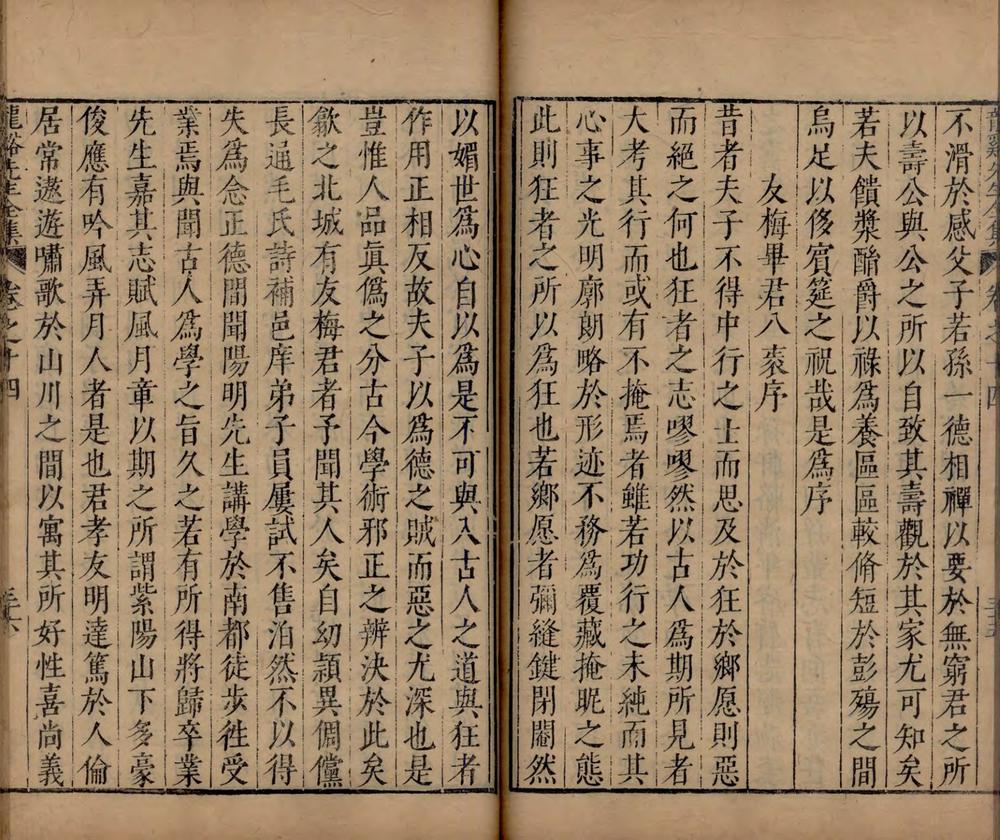 不滑於感父子若孫一德相禪以要於無窮君之所
以壽公與公之所以自致其壽觀於其家尤可知矣
若夫饋漿酳爵以祿爲養區區較脩短於彭殤之間
烏足以侈賓筵之祝哉是爲序
友梅畢君八袠序
昔者夫子不得中行之士而思及於狂於鄉愿則惡
而絕之何也狂者之志嘐嘐然以古人爲期所見者
大考其行而或有不掩焉者雖若功行之未純而其
心事之光明廓朗略於形迹不務爲覆藏掩昵之態
此則狂者之所以爲狂也若鄉愿者彌縫鍵閉閹然
以媚世爲心自以爲是不可與入古人之道與狂者
作用正相反故夫子以爲德之賊而惡之尤深也是
豈惟人品眞僞之分古今學術邪正之辨決於此矣
歙之北城有友梅君者予聞其人矣自幼頴異倜儻
長通毛氏詩補邑庠弟子員屢試不售泊然不以得
失爲念正德間聞陽明先生講學於南都徒步徃受
業焉與聞古人爲學之旨久之若有所得將歸卒業
先生嘉其志賦風月章以期之所謂紫陽山下多豪
俊應有吟風弄月人者是也君孝友明達篤於人倫
居常遨遊嘯歌於山川之間以寓其所好性喜尚義
龍谿先生全集 卷之十四 三十六